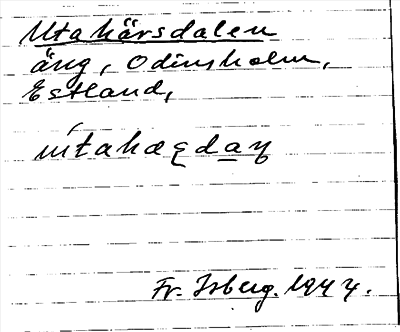 Utahärsdalen
äng, Odinsholm,
Estland,
Fr. Isberg. 1944.